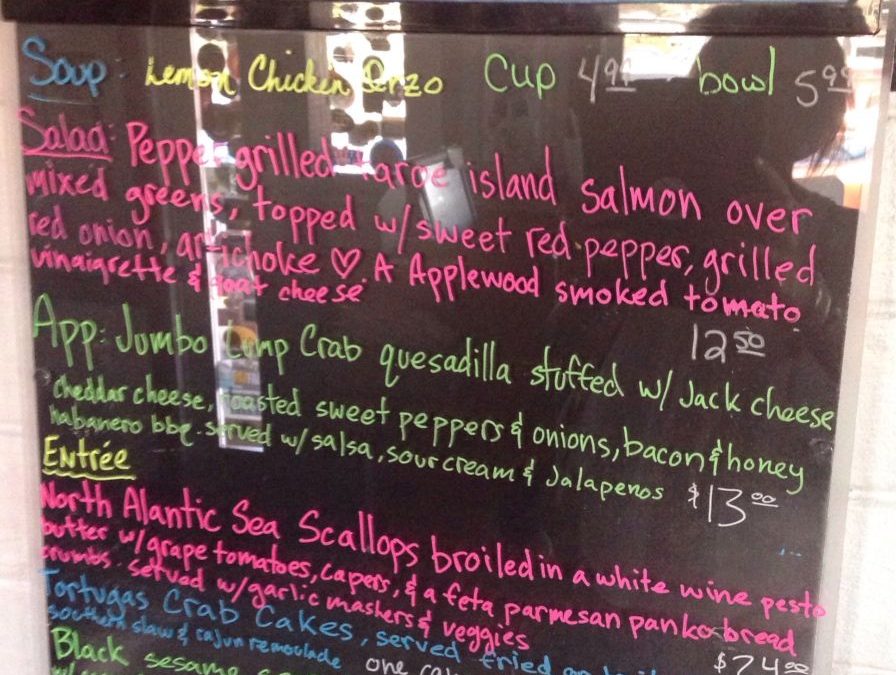 Soup: Lemon Chicken Orzo Cup 4.99 bowl 5.99
Salad: Pepper grilled faroe island salmon over
mixed greens, topped w/ sweet red pepper, grilled
red onion, artichoke ♡. A Applewood smoked tomato
vinaigrette & goat cheese
12.50
App: Jumbo Lump Crab quesadilla stuffed w/ Jack cheese
cheddar cheese, roasted sweet peppers & onions, bacon & honey
habanero bbq. served w/ salsa, sour cream & Jalapenos $13.00
Entrée
North Alantic Sea Scallops broiled in a white wine pesto
butter w/ grape tomatoes, capers, & a feta parmesan panko bread
crumbs. served w/ garlic mashers & veggies
$24.00
Tortugas Crab Cakes, served fried
southern slaw & cajun remoulade one
Black sesame